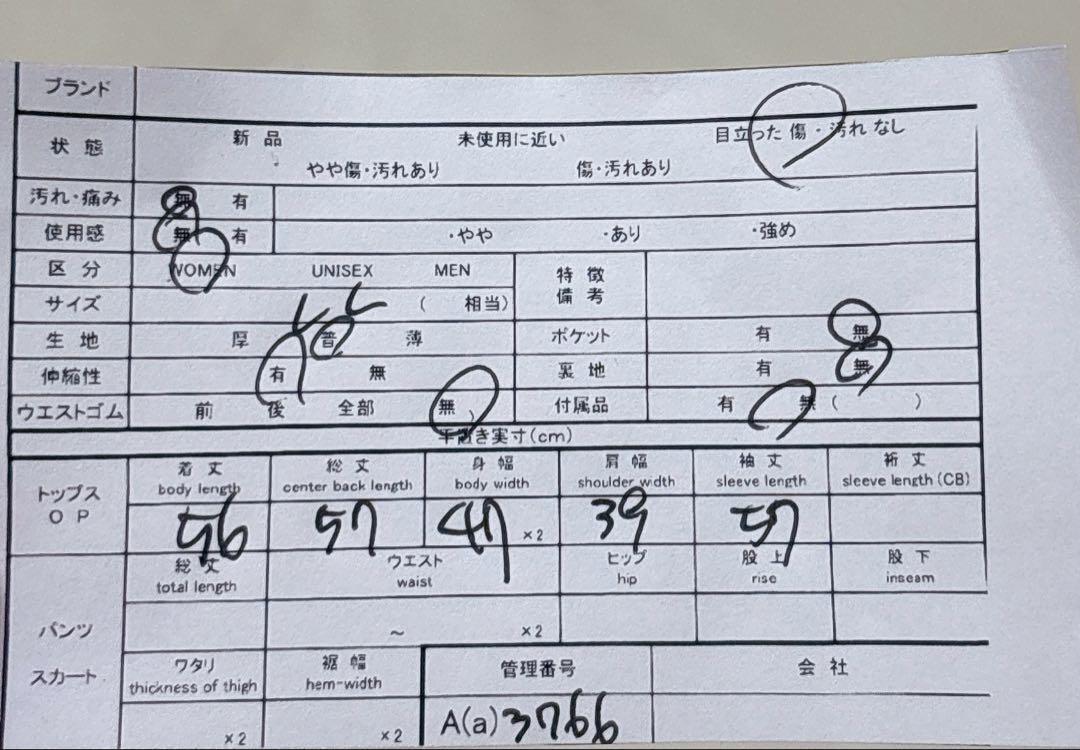 ブランド
状態 新品 未使用に近い 目立った傷・汚れなし
やや傷・汚れあり 傷・汚れあり
汚れ・痛み 無 有
使用感 無 有 ・やや ・あり ・強め
区分 WOMEN UNISEX MEN 特徴
備考
サイズ LL ( 相当)
生地 厚 普 薄 ポケット 有 無
伸縮性 有 無 裏地 有 無
ウエストゴム 前 後 全部 無 付属品 有 無 ( )
平置き実寸(cm)
トップス
OP
着丈 総丈 身幅 肩幅 袖丈 裄丈
body length center back length body width shoulder wdth sleeve length sleeve length (CB)
56 57 47 ×2 39 57
総丈 ウエスト ヒップ 股上 股下
total length waist hip rise inseam
パンツ ~ ×2
スカート
ワタリ 裾幅 管理番号 会社
thickness of thigh hem-width
×2 ×2 A(a) 3766